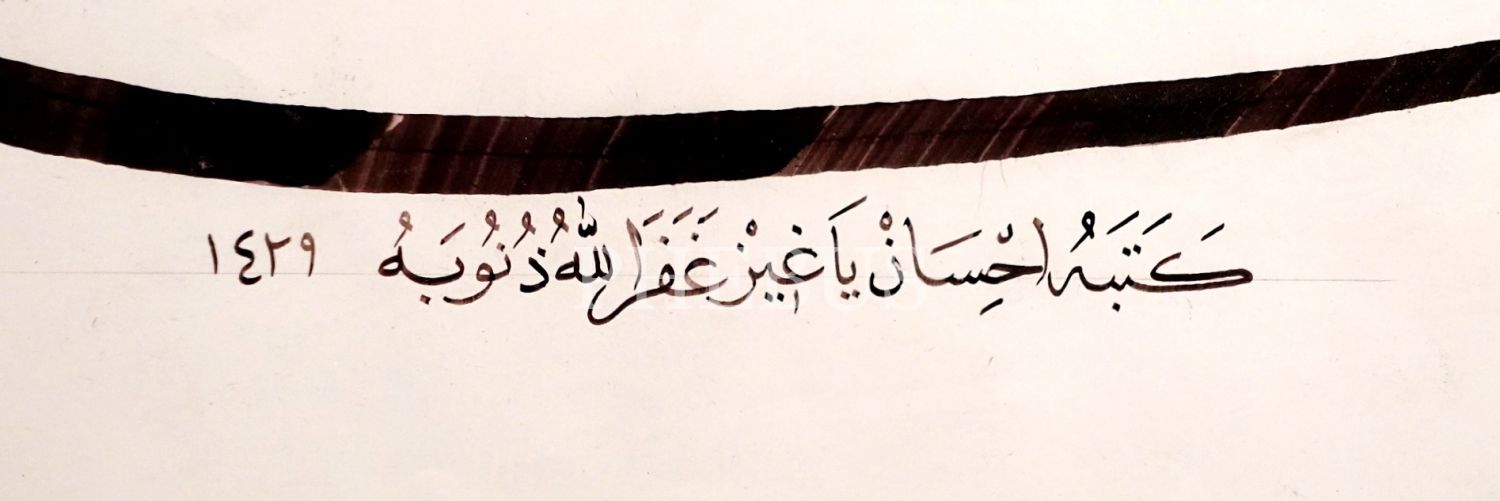 كَتَبَهُ احْسَانْ يَاغِيزْ غَفَرَ اللهُ ذُنُوبَهُ ١٤٢٩